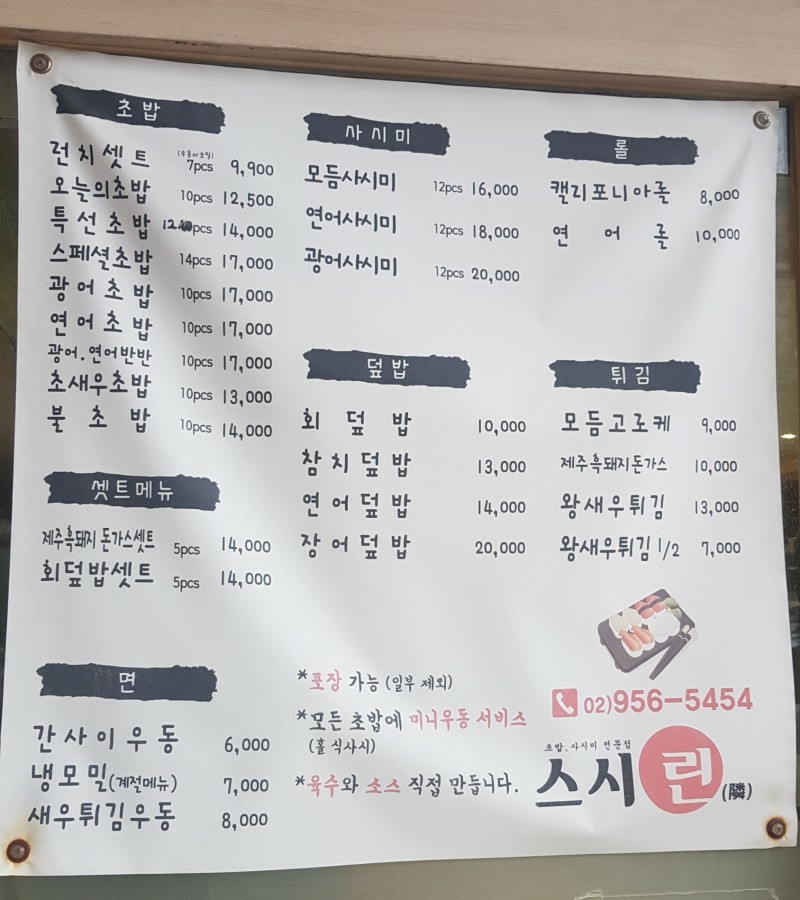 초밥
런치셋트 7pcs 9,900
오늘의초밥 10pcs 12,500
특선초밥 12pcs 14,000
스페셜초밥 14pcs 17,000
광어초밥 10pcs 17,000
연어초밥 10pcs 17,000
광어.연어반반 10pcs 17,000
초새우초밥 10pcs 13,000
불초밥 10pcs 14,000
셋트메뉴
제주흑돼지 돈가스셋트 5pcs 14,000
회덮밥셋트 5pcs 14,000
면
간사이우동 6,000
냉모밀(계절메뉴) 7,000
새우튀김우동 8,000
사시미
모듬사시미 12pcs 16,000
연어사시미 12pcs 18,000
광어사시미 12pcs 20,000
덮밥
회덮밥 10,000
참치덮밥 13,000
연어덮밥 14,000
장어덮밥 20,000
*포장 가능 (일부 제외)
*모든 초밥에 미니우동 서비스
(홀 식사시)
*육수와 소스 직접 만듭니다.
롤
캘리포니아롤 8,000
연어롤 10,000
튀김
모듬고로케 9,000
제주흑돼지돈가스 10,000
왕새우튀김 13,000
왕새우튀김 1/2 7,000
02)956-5454
초밥.사시미 전문점
스시린(隣)